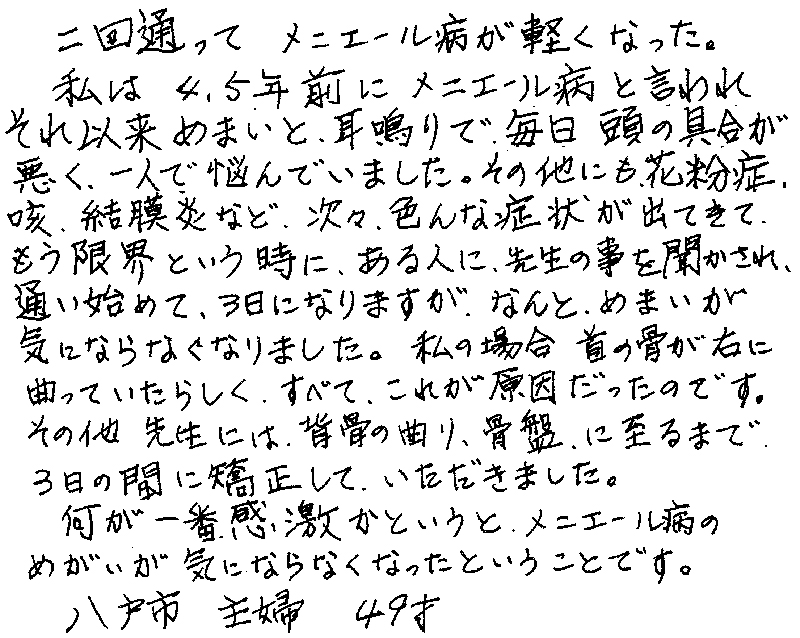 二回通って メニエール病が軽くなった。
私は 4、5年前に メニエール病と言われ
それ以来 めまいと、耳鳴りで、毎日 頭の具合が
悪く、一人で悩んでいました。その他にも、花粉症、
咳、結膜炎など、次々、色んな症状が出てきて、
もう限界という時に、ある人に、先生の事を聞かされ、
通い始めて、3日になりますが、なんと、めまいが
気にならなくなりました。私の場合 首の骨が右に
曲っていたらしく、すべて、これが原因だったのです。
その他 先生には、背骨の曲り、骨盤、に至るまで、
3日の間に矯正して、いただきました。
何が一番感激かというと、メニエール病の
めがいが気にならなくなったということです。
八戸市 主婦 49才